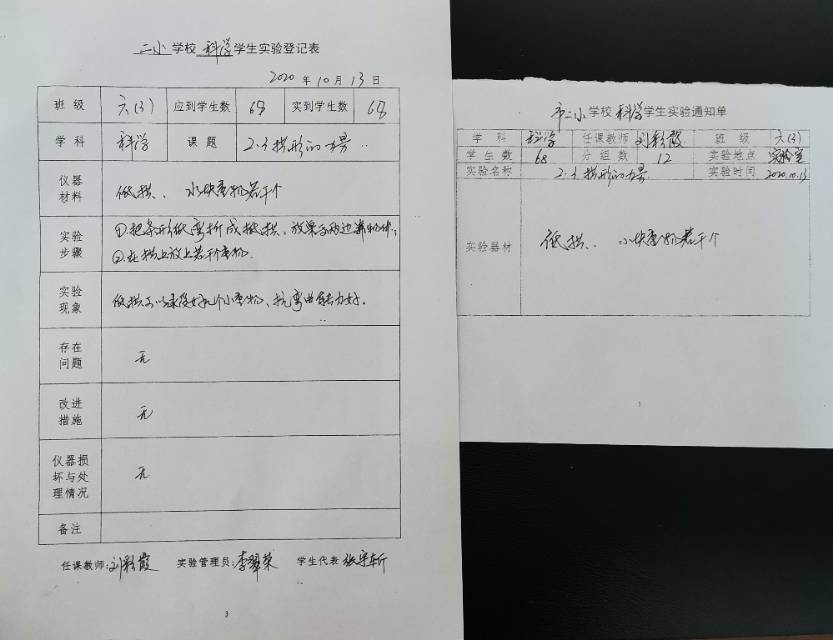 二小学校 科学学生实验登记表
2020 年 10 月 13 日
班级 六(3) 应到学生数 68 实到学生数 68
学科 科学 课题 2.3拱形的力量
仪器材料 纸拱、小块重物若干个
实验步骤 ①把条形纸弯折成纸拱,放桌面两边
②在拱上放上若干重物.
实验现象 纸拱可以承受好几个小重物、抗弯曲能力好.
存在问题 无
改进措施 无
仪器损坏与处理情况 无
备注
任课教师:刘彩霞 实验管理员:李翠荣 学生代表
3
市二小学校 科学学生实验通知单
学科 科学 任课教师 刘彩霞 班级 六(3)
学生数 68 分组数 12 实验地点 实验室
实验名称 2.3拱形的力量 实验时间 2020.10.13
实验器材 纸拱、小块重物若干个
1